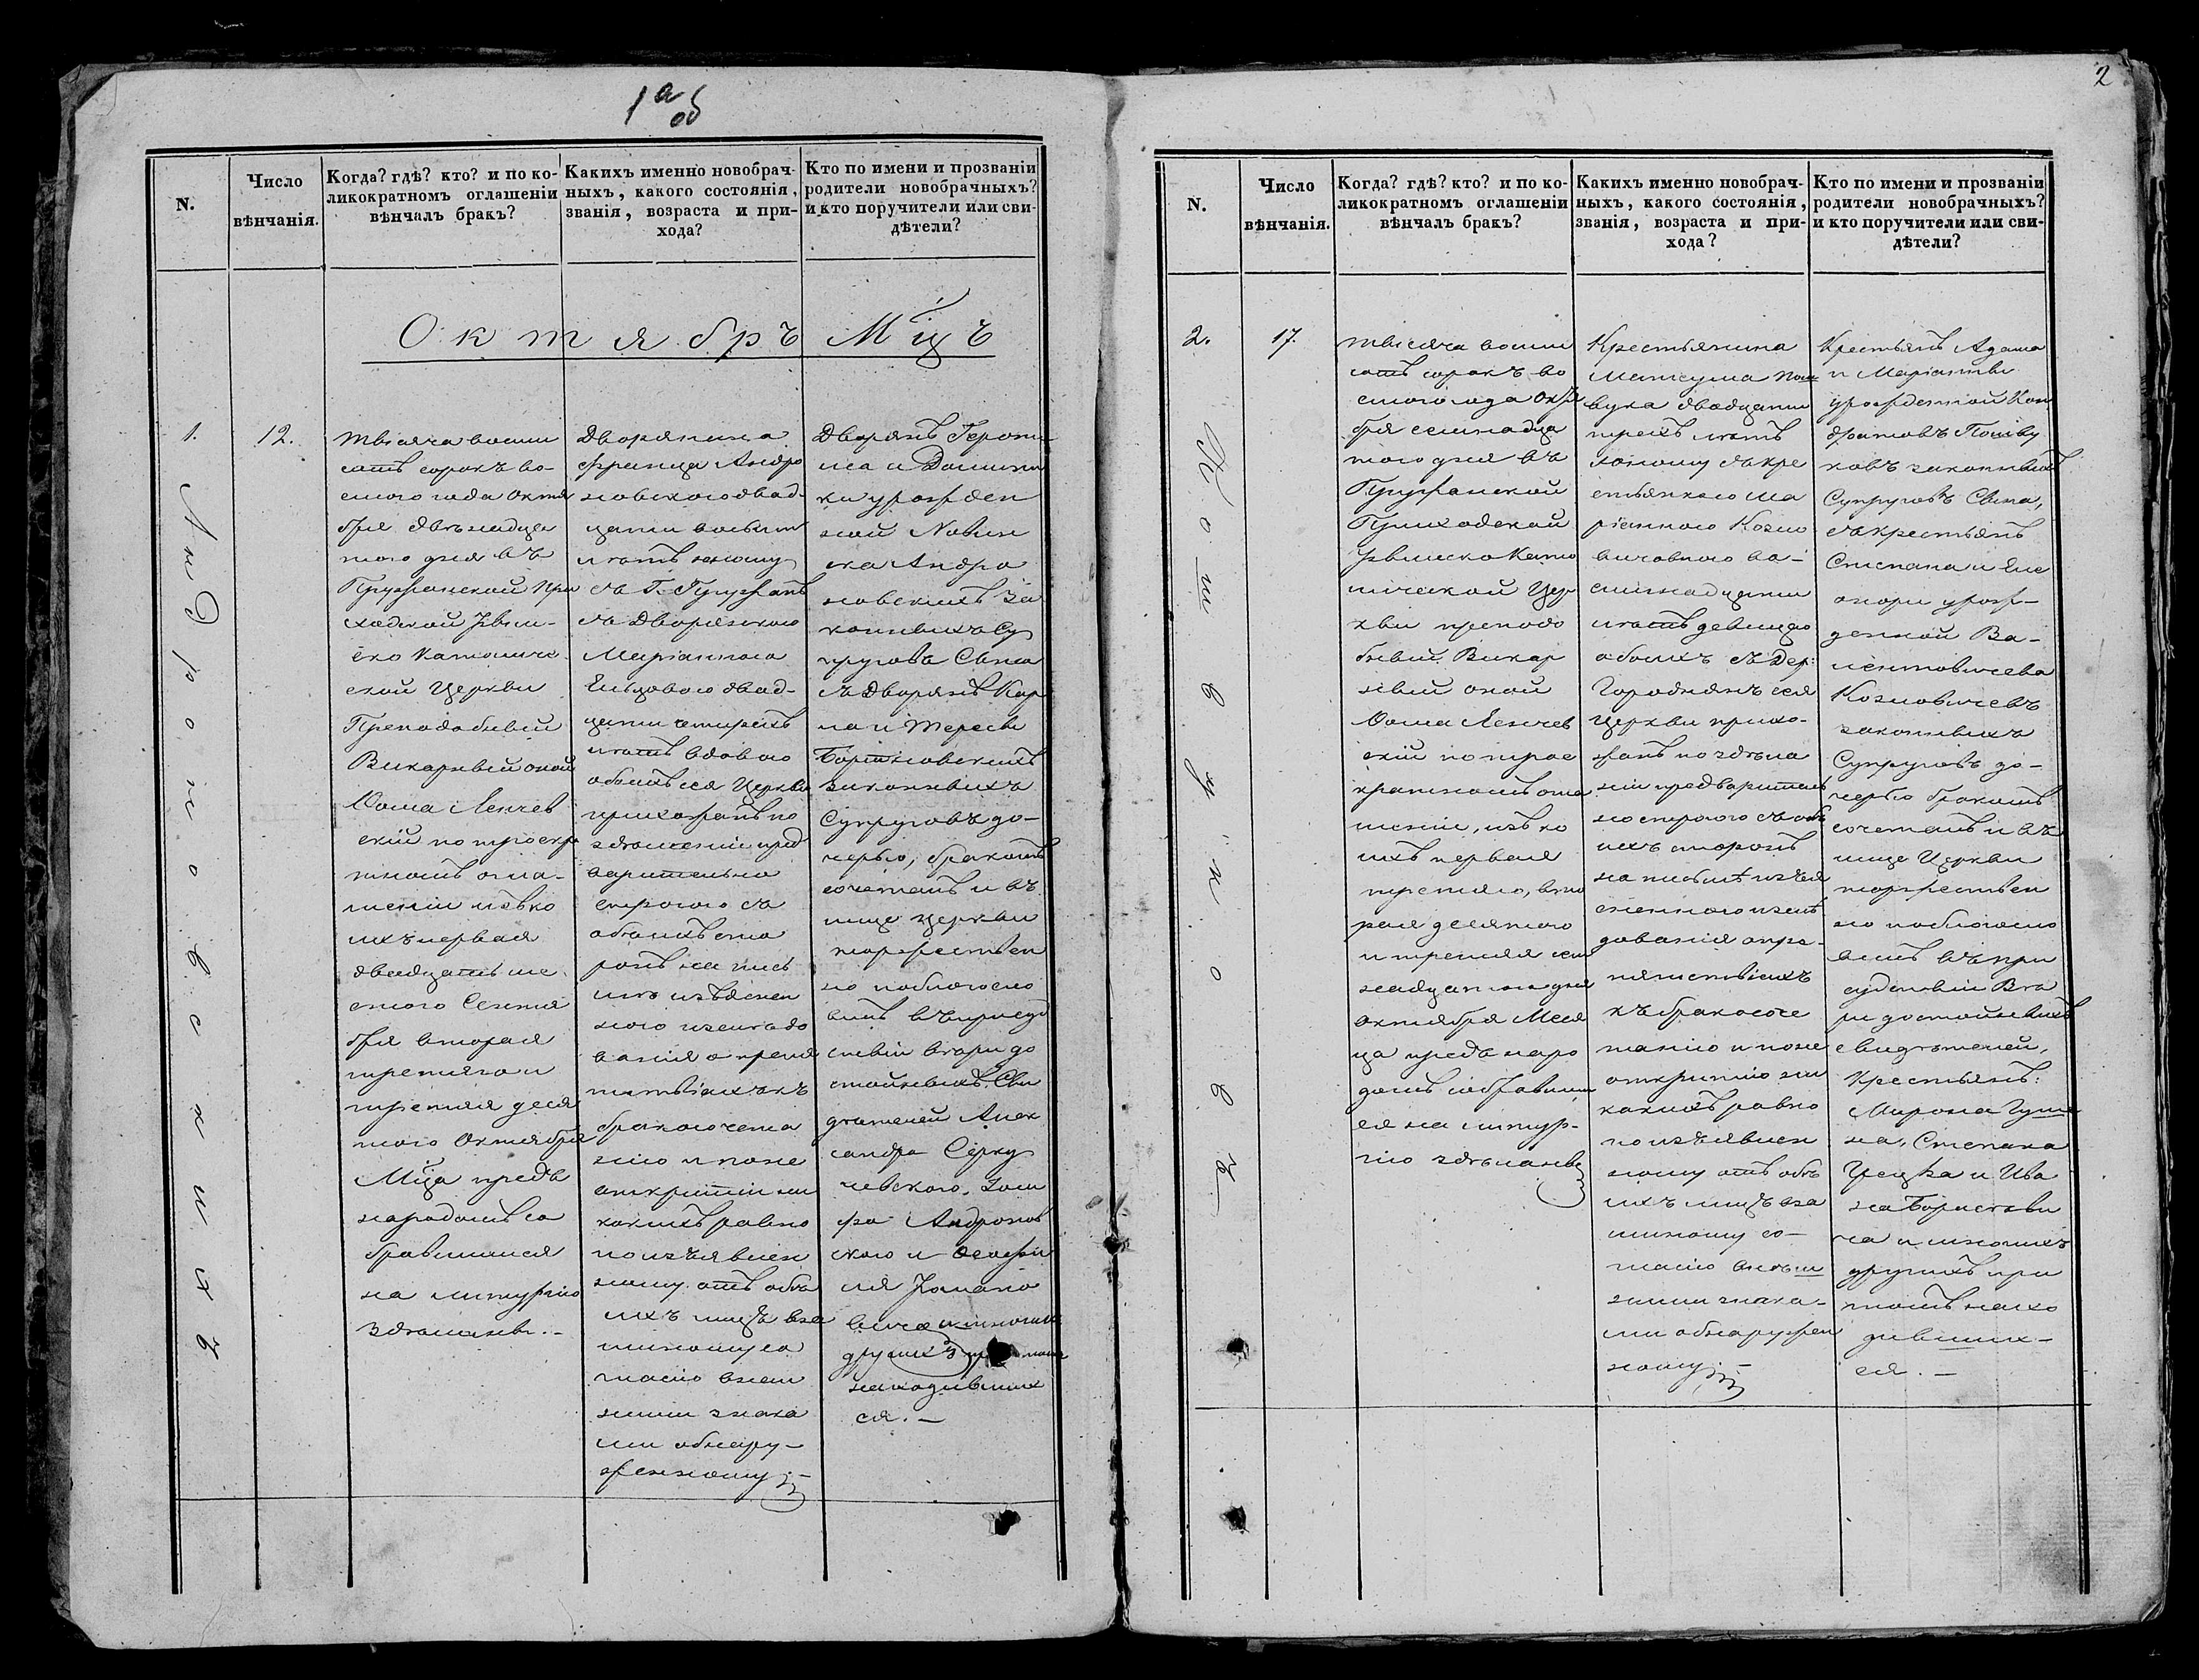 1а об
N.
Число
вѣнчанія.
Когда? гдѣ? кто? и по ко-
ликократномъ оглашеніи
вѣнчалъ бракъ?
Какихъ именно новобрач-
ныхъ, какого состоянія,
званія, возраста и при-
хода?
Кто по имени и прозванію
родители новобрачныхъ?
и кто поручители или сви-
дѣтели?
Октябрь Мцъ
1.
Андроновскихъ
12.
тысяча восем
сотъ сорокъ во-
смого года Октя
бря двѣнадца
того дня въ
Пружанской При
ходской Рим-
ско Католиче
ской Церкви
Преподобный
Викарный оной
Фома Ленчев
скій по троекра
тномъ огла-
шеніи изъ ко
ихъ первая
двадцать ше
стого Сентя
бря вторая
третяго и
третяя деся
того Октября
Мца предъ
народомъ со
бравшимся
на литургію
здѣланы.-
Дворянина
Франца Андро
новского двад-
цати восьми
лѣтъ юношу
съ Г. Пружанъ
съ Дворянкою
Маріанною
двад-
цати четырехъ
лѣтъ вдовою
обоихъ сея Церкви
прихожанъ по
здѣланіи пред
варительно
строгого съ
обоихъ сто
ронъ на пись
мѣ изъяснен
ного изслѣдо
ванія о препя
тствіяхъ къ
бракосочета
нію и по не
открытіи ни
какихъ равно
по изъявлен
ному отъ обѣ
ихъ лицъ вза
имному со
гласію внѣш
ними знака
ми обнару-
женному
Дворянъ Герони
ма и Домини
ки урожден
ной Новин
ска Андро
новскихъ За
конныхъ Су
пруговъ Сына
съ Дворянъ Кар
ла и Тересы
законныхъ
Супруговъ до-
черью, бракомъ
сочеталъ и въ
лице Церкви
торжествен
но поблагосло
вилъ въ присуд
ствіи вѣри до
стойныхъ Сви
дѣтелей Алек
сандра
Андронов
ского и
Романо
вича и многихъ
другихъ при томъ
находивших
ся.-
2
N.
Число
вѣнчанія.
Когда? гдѣ? кто? и по ко-
ликократномъ оглашеніи
вѣнчалъ бракъ?
Какихъ именно новобрач-
ныхъ, какого состоянія,
званія, возраста и при-
хода?
Кто по имени и прозванію
родители новобрачныхъ?
и кто поручители или сви-
дѣтели?
2.
17.
тысяча восем
сотъ сорокъ во
смого года Октя
бря семнадца
того дня въ
Пружанской
Приходской
Римско Като
лической Цер
кви преподо
бный Викар
ный оной
Фома Ленчев
скій по трое
кратномъ огла
шеніи, изъ ко
ихъ первая
третяго, вто
рая десятого
и третяя сем
надцатого дня
Октября Меся
ца предъ наро
домъ собравшим
ся на литур-
гію здѣланы
Крестьянина
двадцати
трехъ лѣтъ
юношу съ кре
стьянкою Ма
ріанною Козло
вичовною во-
семнадцати
лѣтъ девицею
обоихъ съ Дер:
Городнянъ сея
Церкви прихо-
жанъ по здѣла
ніи предварител
но строгого съ обо
ихъ сторонъ
на письмѣ изъя
сненного изслѣ
дованія о пре-
пятствіяхъ
къ бракосоче
танію и по не
открытію ни
какихъ равно
по изъявлен
ному отъ обѣ
ихъ лицъ вза
имному со-
гласію внѣш
ними знака-
ми обнаружен
ному
Крестьянъ Адама
и Маріанны
урожденной Кон
дратовъ
законныхъ
Супруговъ Сына,
съ крестьянъ
Степана и Еле
оноры урож-
денной Ва-
лентовичева
Козловичевъ
законныхъ
Супруговъ до-
черью бракомъ
сочеталъ и въ
лице Церкви
торжествен
но поблагосло
вилъ въ при
судствіи Вѣ
ри достойныхъ
свидѣтелей,
Крестьянъ:
Мирона
Степана
и Ива
на
и многихъ
другихъ при
томъ нахо
дивших-
ся.-